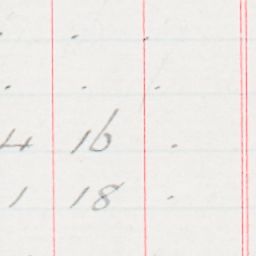 . . .
. . .
4 16 .
1 18 .